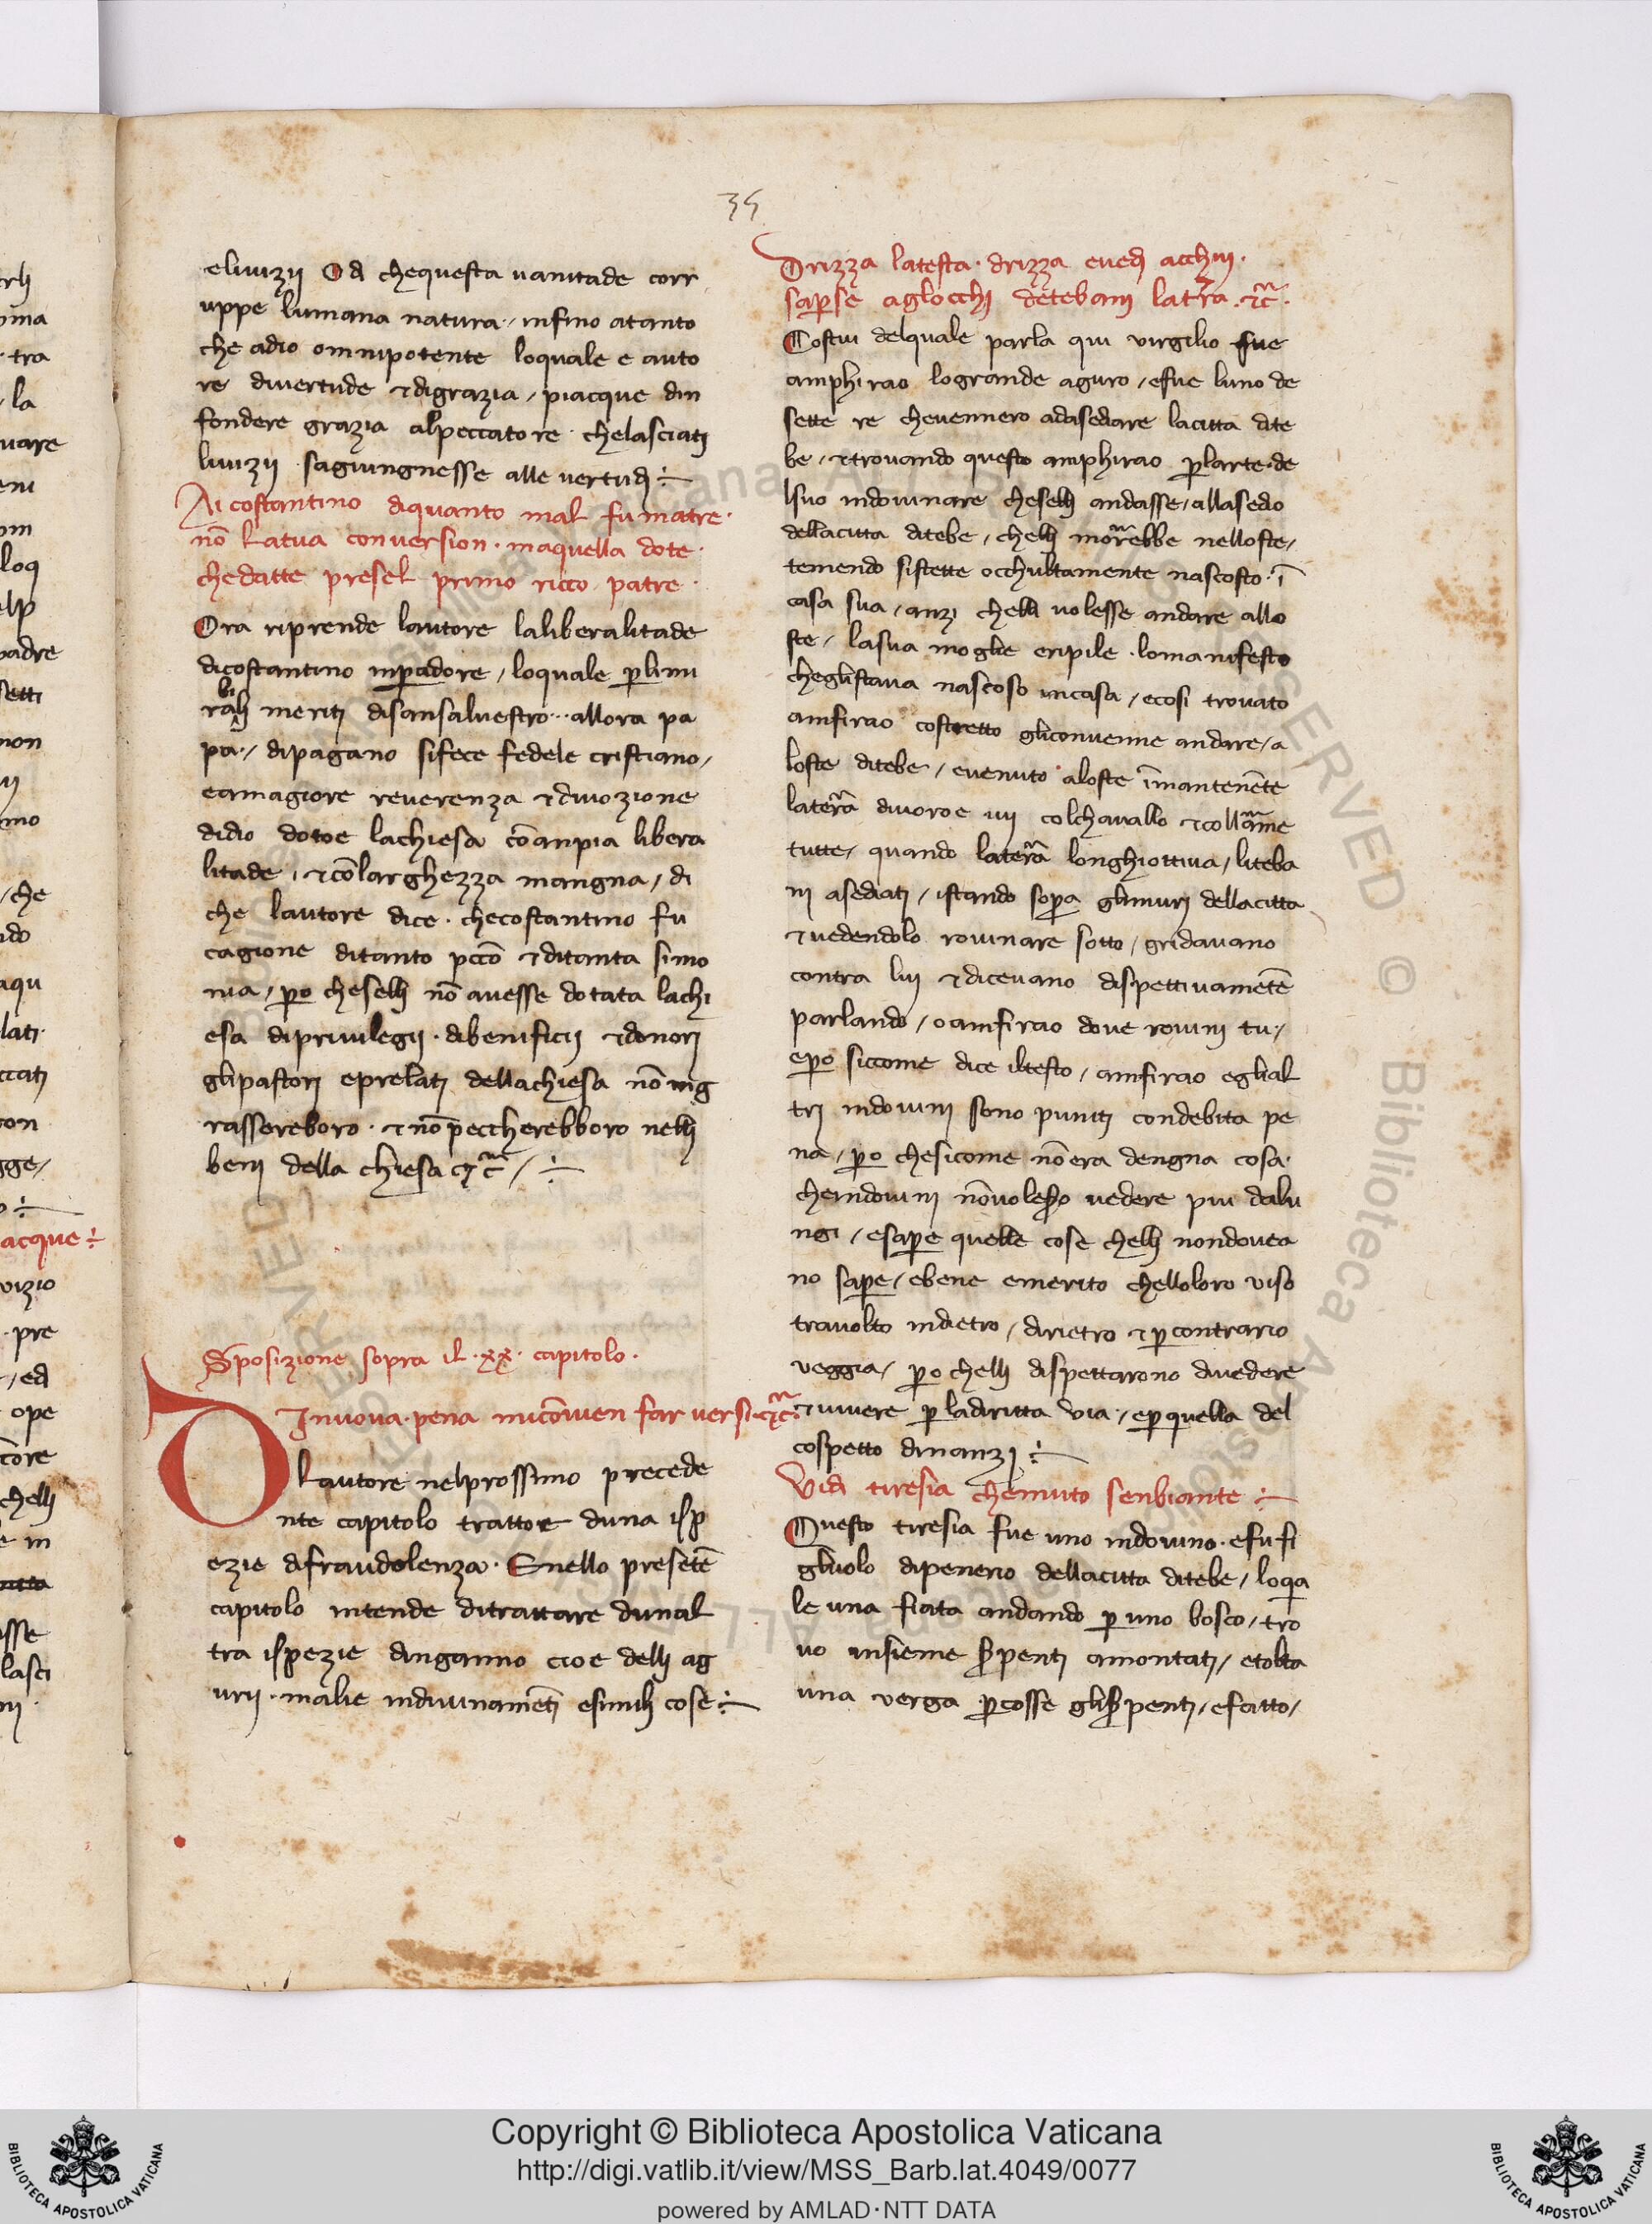 35
elivizij Od chequesta vanitade corr
uppe lumana natura / infino atanto
che adio omnipotente loquale e auto
re divertude et digrazia / piacque din
fondere grazia alpeccatore chelasciati
livizij sagiungnesse alle vertudi ÷
Ai costantino diquanto mal fu matre ·
nō latua conversion · maquella dote ·
chedatte presel primo ricco patre ·
Ora riprende lautore laliberalitade
dicostantino inpadore / loquale p limi
rabili meriti disansalvestro · allora pa
pa · / dipagano sifece fedele cristiano /
eamagiore reverenza et divozione
didio dotoe lachiesa cōanpia libera
litade / et cōlarghezza mangna / di
che lautore dice · checostantino fu
cagione ditanto pccō et ditanta simo
nia / po cheselli nō avesse dotata lachi
esa diprivilegij · dibenificij et donori
glipastori eprelati dellachiesa nō ing
rassereboro · et nō peccherebboro nelli
beni della chiesa etc / ÷
Sposizione sopra il · xx · capitolo ·
DInuova · pena miconvien far versi · etc ·
Lautore nelprossimo precede
nte capitolo trattoe duna isp
ezie difraudolenza · Enello presētē
capitolo intende ditrattare dunal
tra ispezie dinganno cioe delli ag
urij · malie indivinamēti esimili cose ÷
Drizza latesta · drizza evedi acchui ·
saperse aglocchi detebani laterra · etc ·
Costui delquale parla qui virgilio fue
amphirao logrande aguro / efue luno de
sette re chevennero adasediare lacitta dite
be / et trovando questo amphirao plarte · de
lsuo indovinare cheselli andasse / allasedio
dellacitta ditebe / chelli morrebbe nelloste /
temendo sistette occhultamente nascosto · ī
casa sua / anzi chelli volesse andare allo
ste / lasua moglie eripile · lomanifesto
cheglistava nascoso incasa / ecosi trovato
amfirao costretto gliconvenne andare / a
loste ditebe / evenuto aloste īmantenēte
laterra divoroe vij colchavallo et collarme
tutte / quando laterra longhiottiva / liteba
ni asediati / istando sopra glimuri dellacitta
et vedendolo rovinare sotto / gridavano
contra lui et dicevano dispettivamētē
parlando / o amfirao dove rovini tu · /
epo siccome dice iltesto / amfirao eglial
tri indovini sono puniti condebita pe
na / po chesicome nō era dengna cosa ·
cheindovini nōvolessero vedere piu dalu
ngi / esape quelle cose chelli nondovea
no sape / ebene emerito chelloloro viso
travolto indietro / dirietro et p contrario
veggia / po chelli dispettarono divedere
et vivere p ladiritta via / ep quella del
cospetto dinanzi ÷
Vidi tiresia chemuto senbiante ÷
Questo tiresia fue uno indovino · efu fi
gliuolo dipenerio dellacitta ditebe / loqa
le una fiata andando p uno bosco / tro
vo insieme serpenti amontati / etolta
una verga percosse gliserpenti / efatto /
Copyright © Biblioteca Apostolica Vaticana
http://digi.vatlib.it/view/MSS_Barb.lat.4049/0077
powered by AMLAD·NTT DATA
BIBLIOTECA APOSTOLICA VATICANA
BIBLIOTECA APOSTOLICA VATICANA